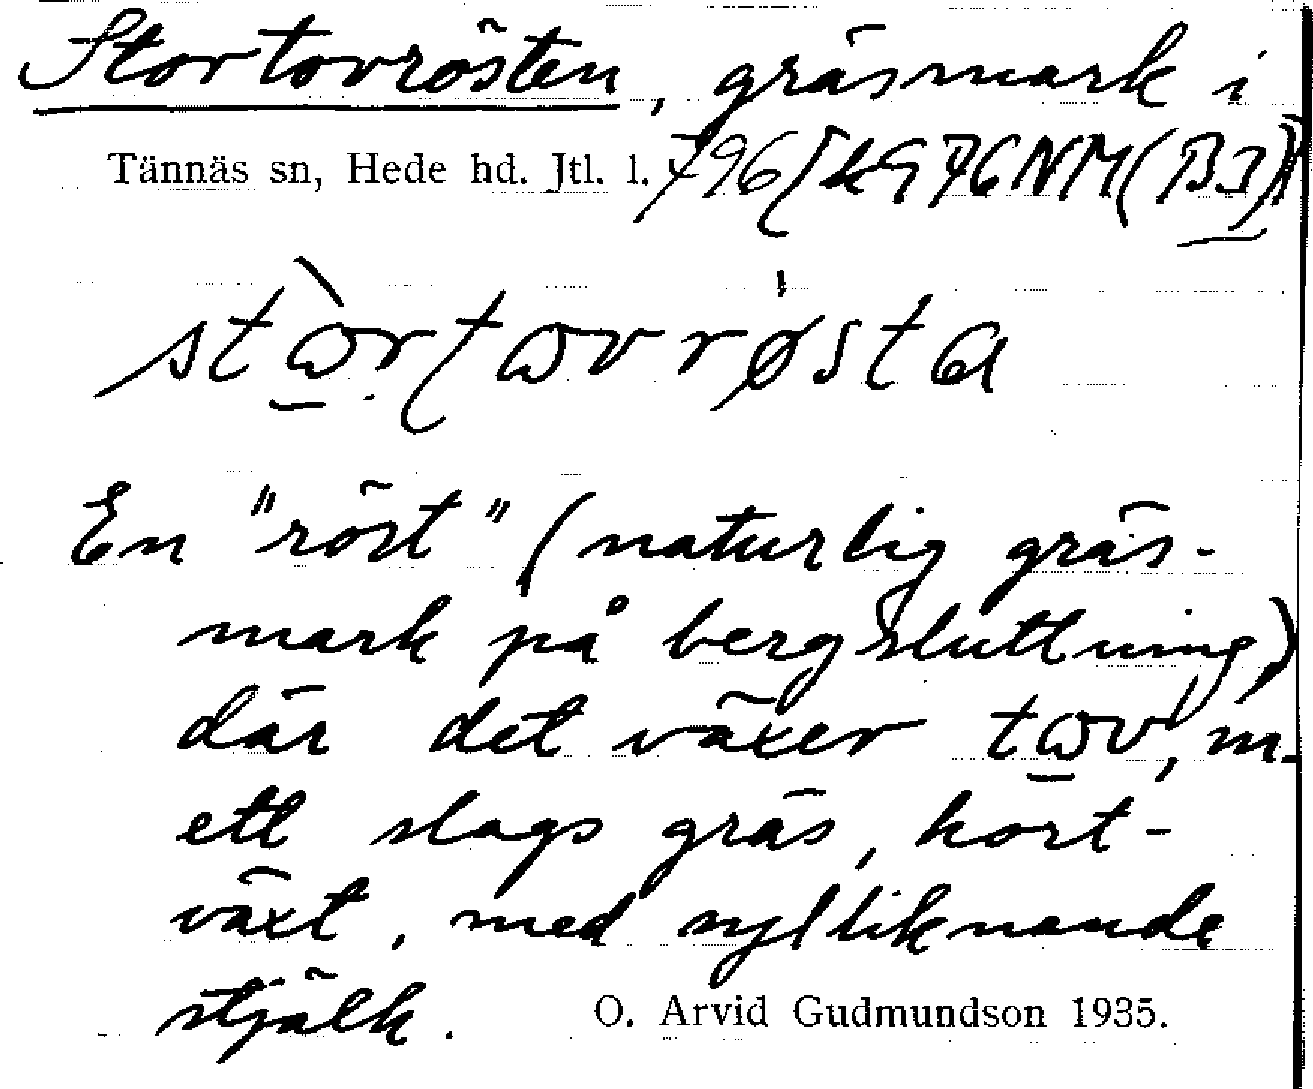 Stortovrösten, gräsmark i
Tännäs sn, Hede hd. Jtl. l.
En "röst" (naturlig gräs-
mark på bergsluttning)
där det växer tωv, m.
ett slags gräs, kort-
växt, med sylliknande
stjälk.
O. Arvid Gudmundson 1935.